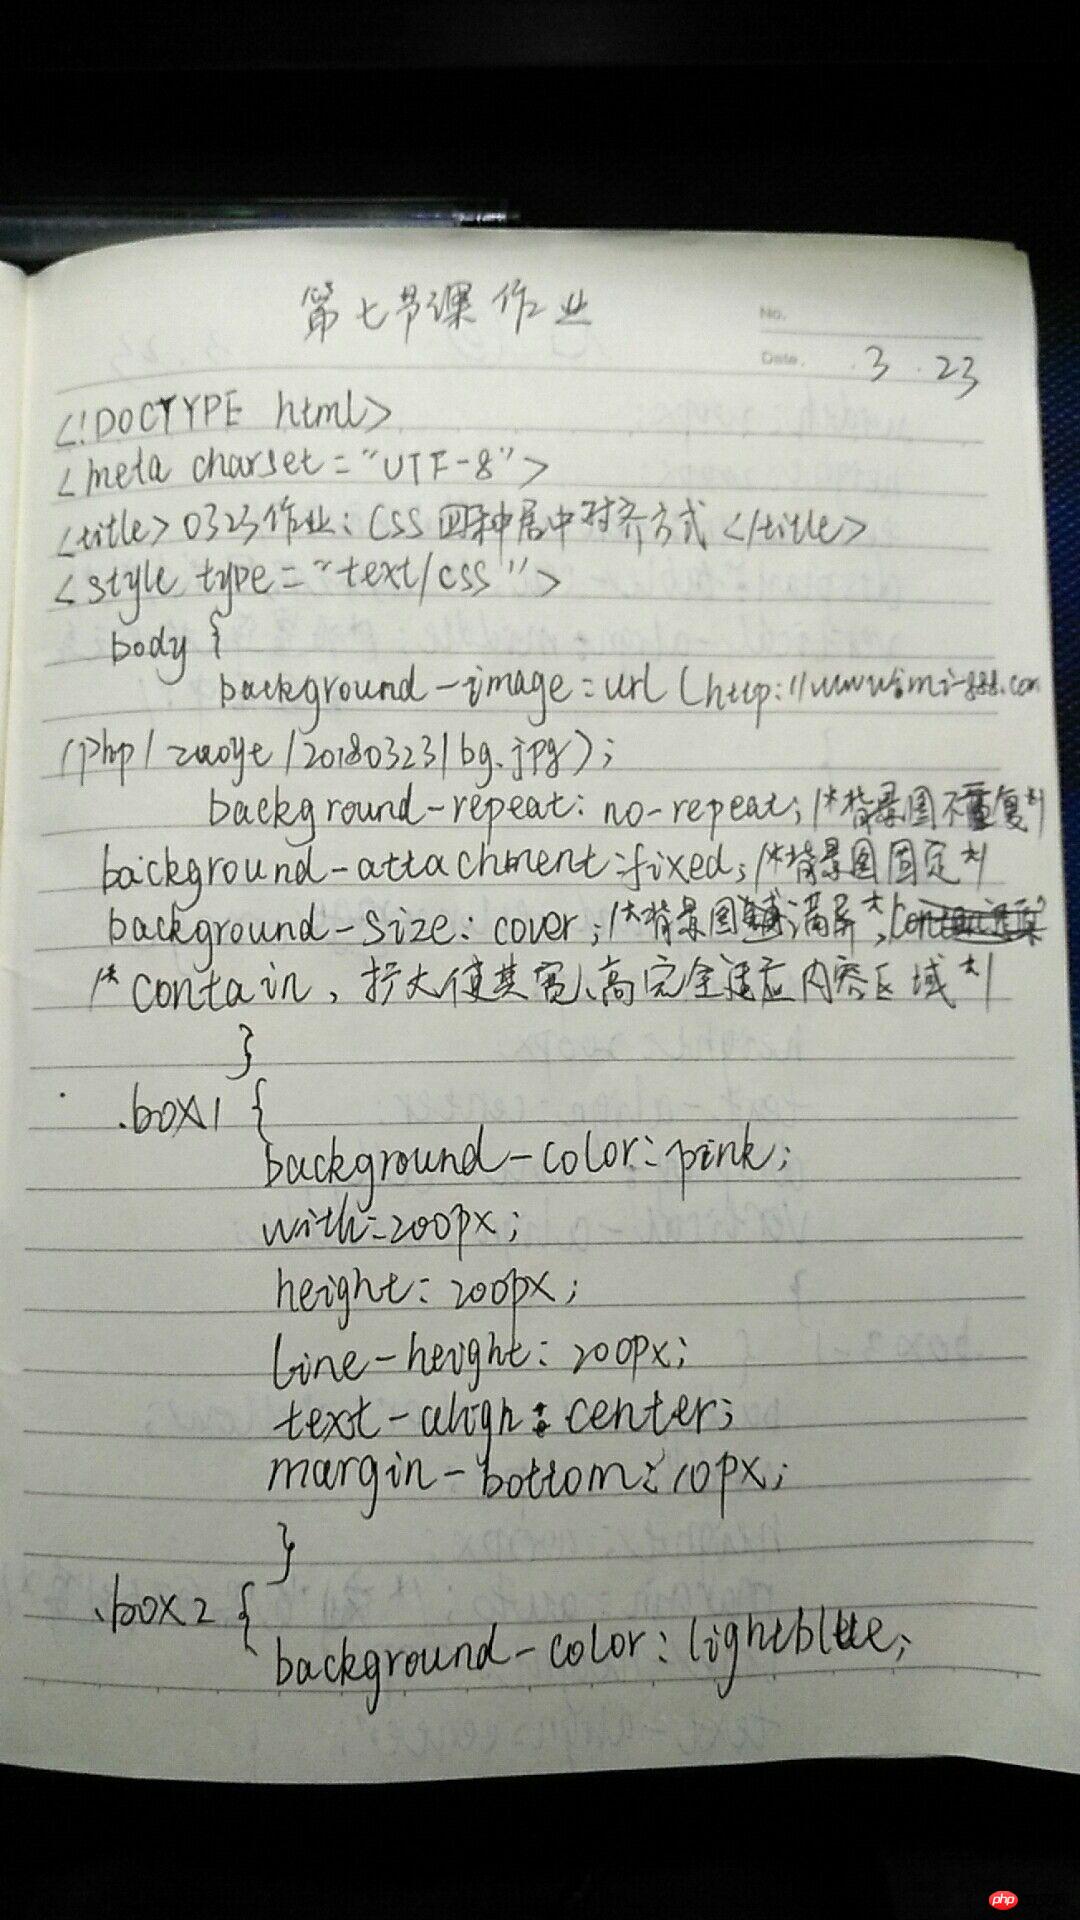 第七节课作业
No.
Date. 3.23
<!DOCTYPE html>
<meta charset="UTF-8">
<title>0323作业:CSS四种居中对齐方式</title>
<style type="text/css">
body {
background-image:url(http://www
/php/zuoye/20180323/bg.jpg);
background-repeat: no-repeat; /*背景图不重复*/
background-attachment:fixed; /*背景图固定*/
background-size: cover; /*背景图铺满屏*
/* contain, 扩大使其宽、高完全适应内容区域*/
}
.box1 {
background-color:pink;
with:200px;
height: 200px;
line-height: 200px;
text-align: center;
margin-bottom: 10px;
}
.box2 {
background-color: lightblue;
php